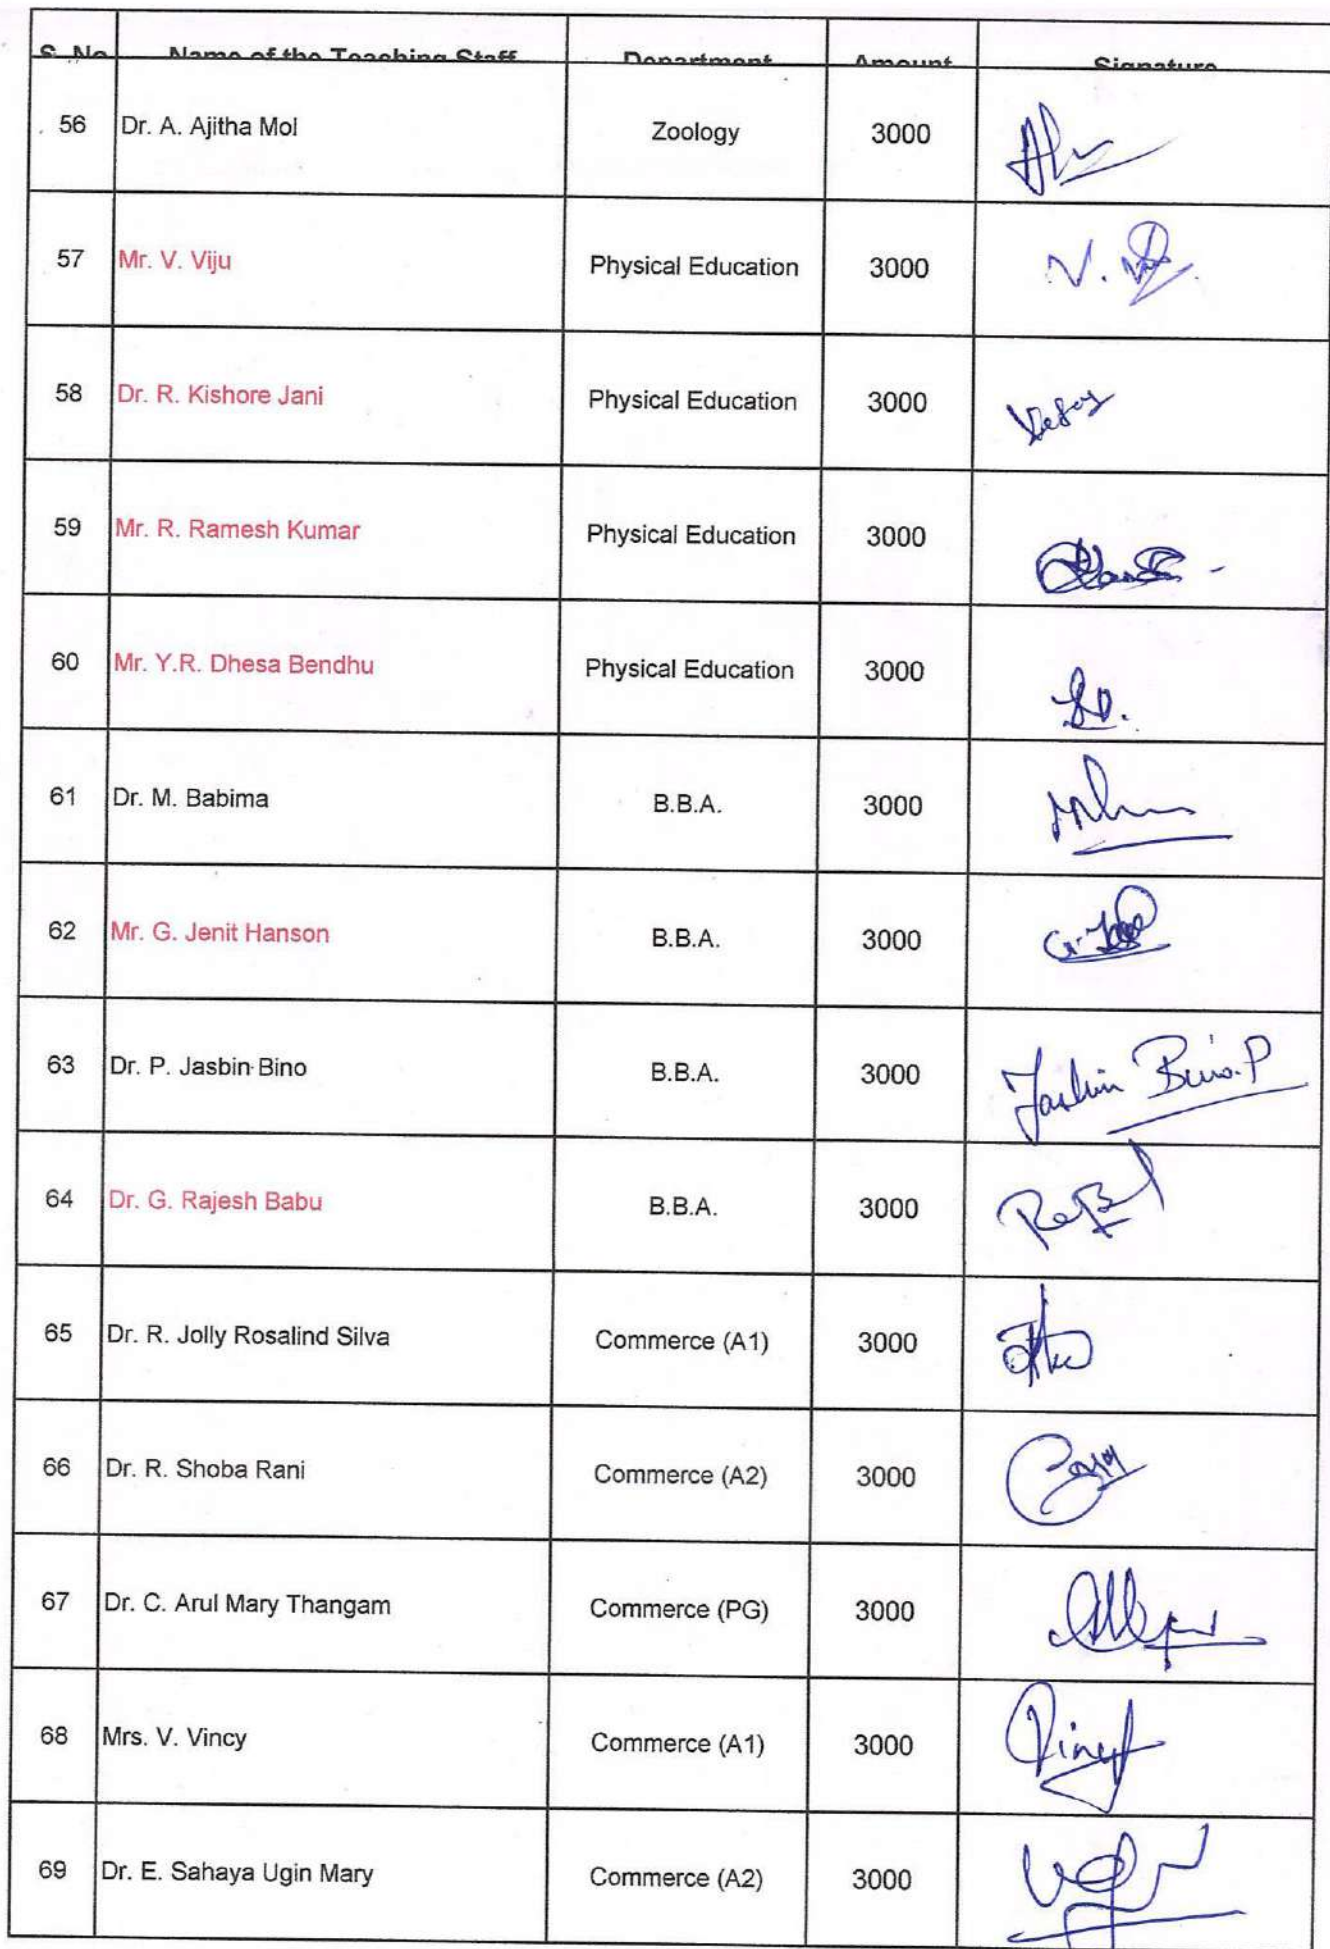 S. No Name of the Teaching Staff Department Amount Signature
56 Dr. A. Ajitha Mol Zoology 3000
57 Mr. V. Viju Physical Education 3000 V.
58 Dr. R. Kishore Jani Physical Education 3000
59 Mr. R. Ramesh Kumar Physical Education 3000
60 Mr. Y.R. Dhesa Bendhu Physical Education 3000
61 Dr. M. Babima B.B.A. 3000
62 Mr. G. Jenit Hanson B.B.A. 3000
63 Dr. P. Jasbin Bino B.B.A. 3000 Jasbin Bino.P
64 Dr. G. Rajesh Babu B.B.A. 3000
65 Dr. R. Jolly Rosalind Silva Commerce (A1) 3000
66 Dr. R. Shoba Rani Commerce (A2) 3000
67 Dr. C. Arul Mary Thangam Commerce (PG) 3000
68 Mrs. V. Vincy Commerce (A1) 3000 Vincy
69 Dr. E. Sahaya Ugin Mary Commerce (A2) 3000